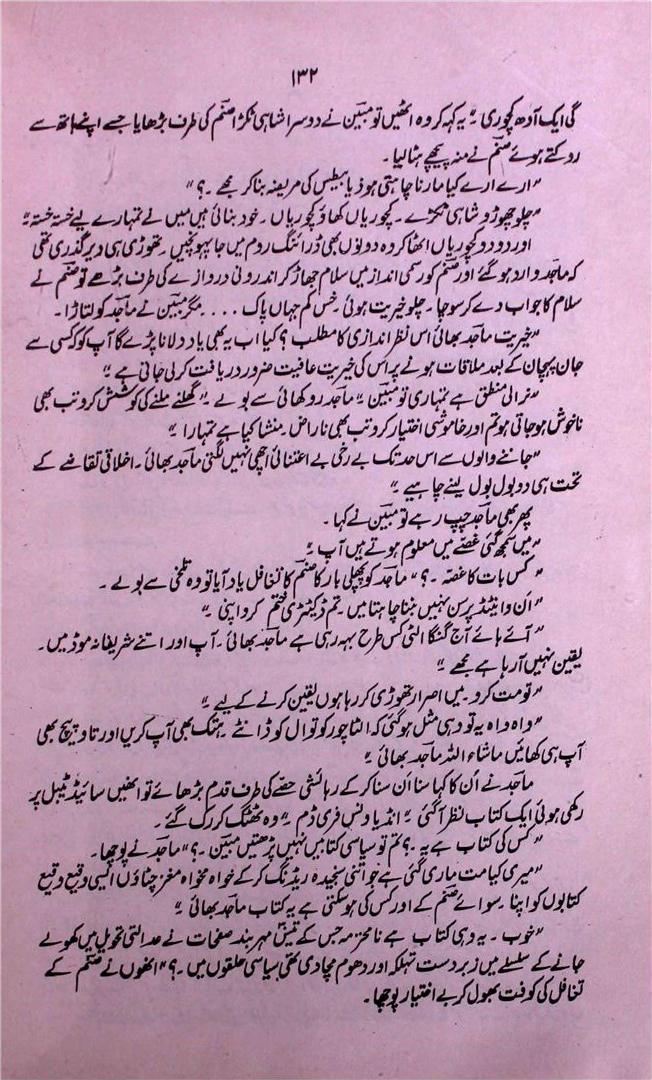 ۱۳۲
گی ایک آدھ کچوری ۔" یہ کہہ کر وہ اٹھیں تو مبین نے دوسرا شاہی ٹکڑا صنم کی طرف بڑھایا جسے اپنے ہاتھ سے
روکتے ہوئے صنم نے منہ پیچھے ہٹا لیا ۔
"ارے ارے کیا مارنا چاہتی ہو ذیابیطس کی مریضہ بنا کر مجھے ۔؟"
"چلو چھوڑو شاہی ٹکڑے ۔ کچوریاں کھاؤ کچوریاں ۔ خود بنائی ہیں میں نے تمہارے لیے خستہ خستہ ۔"
اور دو دو کچوریاں اٹھا کر وہ دونوں بھی ڈرائنگ روم میں جا پہونچیں ۔ تھوڑی ہی دیر گذری تھی
کہ ماجد وارد ہو گئے اور صنم کو رسمی انداز میں سلام جھاڑ کر اندرونی دروازے کی طرف بڑھے تو صنم نے
سلام کا جواب دے کر سوچا ۔ چلو خیریت ہوئی ۔ خس کم جہاں پاک .... مگر مبین نے ماجد کو لتاڑا ۔
"خیریت ماجد بھائی اس نظر اندازی کا مطلب ؟ کیا اب یہ بھی یاد دلانا پڑے گا آپ کو کسی سے
جان پہچان کے بعد ملاقات ہونے پر اس کی خیریت عافیت ضرور دریافت کر لی جاتی ہے ۔"
"نرالی منطق ہے تمہاری تو مبین ۔" ماجد روکھائی سے بولے ۔" گھلنے ملنے کی کوشش کرو تب بھی
ناخوش ہو جاتی ہو تم اور خاموشی اختیار کرو تب بھی ناراض ۔ منشا کیا ہے تمہارا ۔"
"جاننے والوں سے اس حد تک بے رخی بے اعتنائی اچھی نہیں لگتی ماجد بھائی ۔ اخلاقی تقاضے کے
تحت ہی دو بول بول لینے چاہیے ۔"
پھر بھی ماجد چپ رہے تو مبین نے کہا ۔
"میں سمجھ گئی غصے میں معلوم ہوتے ہیں آپ ۔"
"کس بات کا غصہ ۔؟" ماجد کو پچھلی بار کا صنم کا تغافل یاد آیا تو وہ تلخی سے بولے ۔
"اَن وانٹیڈ پرسن نہیں بننا چاہتا میں ۔ تم ڈکٹیٹری ختم کرو اپنی ۔"
"آئے ہائے آج گنگا الٹی کس طرح بہہ رہی ہے ماجد بھائی ۔ آپ اور اتنے شریفانہ موڈ میں ۔
یقین نہیں آرہا ہے مجھے ۔"
"تو مت کرو ۔ میں اصرار تھوڑی کر رہا ہوں یقین کرنے کے لیے ۔"
"واہ واہ یہ تو وہی مثل ہو گئی کہ الٹا چور کوتوال کو ڈانٹے ۔ ہتک بھی آپ کریں اور تاؤ پیچ بھی
آپ ہی کھائیں ماشاء اللہ ماجد بھائی ۔"
ماجد نے اُن کا کہا سنا اَن سنا کر کے رہائشی حصے کی طرف قدم بڑھائے تو انھیں سائیڈ ٹیبل پر
رکھی ہوئی ایک کتاب نظر آ گئی ۔" انڈیا ونس فری ڈم ۔" وہ ٹھٹک کر رک گئے ۔
"کس کی کتاب ہے یہ ۔؟ تم تو سیاسی کتابیں نہیں پڑھتیں مبین ۔؟" ماجد نے پوچھا ۔
"میری کیا مت ماری گئی ہے جو اتنی سنجیدہ ریڈنگ کر کے خواہ مخواہ مغز چٹاؤں ایسی وقیع وقیع
کتابوں کو اپنا ۔ سوائے صنم کے اور کس کی ہو سکتی ہے یہ کتاب ماجد بھائی ۔"
"خوب ۔ یہ وہی کتاب ہے نا محترمہ جس کے تیس مہر بند صفحات نے عدالتی تحویل میں کھولے
جانے کے سلسلے میں زبردست تہلکہ اور دھوم مچا دی تھی سیاسی حلقوں میں ۔؟" انھوں نے صنم کے
تغافل کی کوفت بھول کر بے اختیار پوچھا ۔